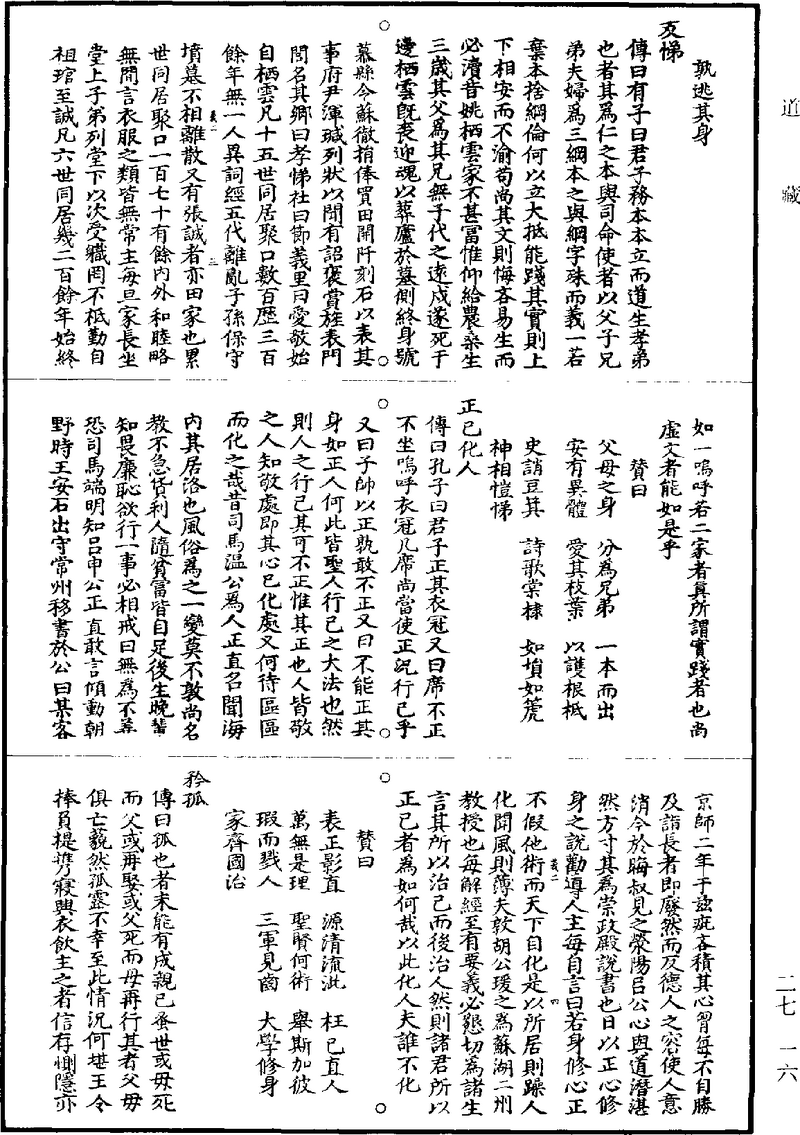 道藏
二七 一六
孰逃其身
友悌
傳曰有子曰君子務本本立而道生孝弟
也者其為仁之本與司命使者以父子兄
弟夫婦為三綱本之與綱字殊而義一若
棄本捨綱倫何以立大抵能踐其實則上
下相安而不渝苟尚其文則悔吝易生而
必瀆昔姚栖雲家不甚富惟仰給農桑生
三歲其父為其兄無子代之遠戍遂死于
邊栖雲既喪迎魂以葬廬於墓側終身號
慕縣令蘇徹捐俸買田開阡刻石以表其
事府尹渾瑊列狀以聞有詔褒賞旌表門
閭名其鄉曰孝悌社曰節義里曰愛敬始
自栖雲凡十五世同居聚口數百歷三百
餘年無一人異詞經五代離亂子孫保守
義二 三
墳墓不相離散又有張誠者亦田家也累
世同居聚口一百七十有餘內外和睦略
無間言衣服之類皆無常主每旦家長坐
堂上子弟列堂下以次受職罔不秪勤自
祖琯至誠凡六世同居幾二百餘年始終
如一嗚呼若二家者真所謂實踐者也尚
虛文者能如是乎
贊曰
父母之身 分為兄弟 一本而出
安有異體 愛其枝葉 以護根柢
史誚豆萁 詩歌棠棣 如塤如箎
神相愷悌
正己化人
傳曰孔子曰君子正其衣冠又曰席不正
不坐嗚呼衣冠几席尚當使正況行己乎
又曰子帥以正孰敢不正又曰不能正其
身如正人何此皆聖人行己之大法也然
則人之行己其可不正惟其正也人皆敬
之人知敬處即其心已化處又何待區區
而化之哉昔司馬溫公為人正直名聞海
內其居洛也風俗為之一變莫不敦尚名
教不急貨利人隨貧富皆自足後生晚輩
知畏廉恥欲行一事必相戒曰無為不善
恐司馬端明知呂申公正直敢言傾動朝
野時王安石出守常州移書於公曰某客
京師二年于茲疵吝積其心胷每不自勝
及詣長者即廢然而反德人之容使人意
消今於晦叔見之滎陽呂公心與道潛湛
然方寸其為崇政殿說書也日以正心修
身之說勸導人主每自言曰若身修心正
義二 四
不假他術而天下自化是以所居則躁人
化聞風則薄夫敦胡公瑗之為蘇湖二州
教授也每解經至有要義必懇切為諸生
言其所以治己而後治人然則諸君所以
正己者為如何哉以此化人夫誰不化
贊曰
表正影直 源清流泚 枉己直人
萬無是理 聖賢何術 舉斯加彼
瑕而戮人 三軍見齒 大學修身
家齊國治
矜孤
傳曰孤也者未能有成親已蚤世或母死
而父或再娶或父死而母再行其者父母
俱亡藐然孤露不幸至此情況何堪王令
捧負提携寢興衣飲主之者信存惻隱亦